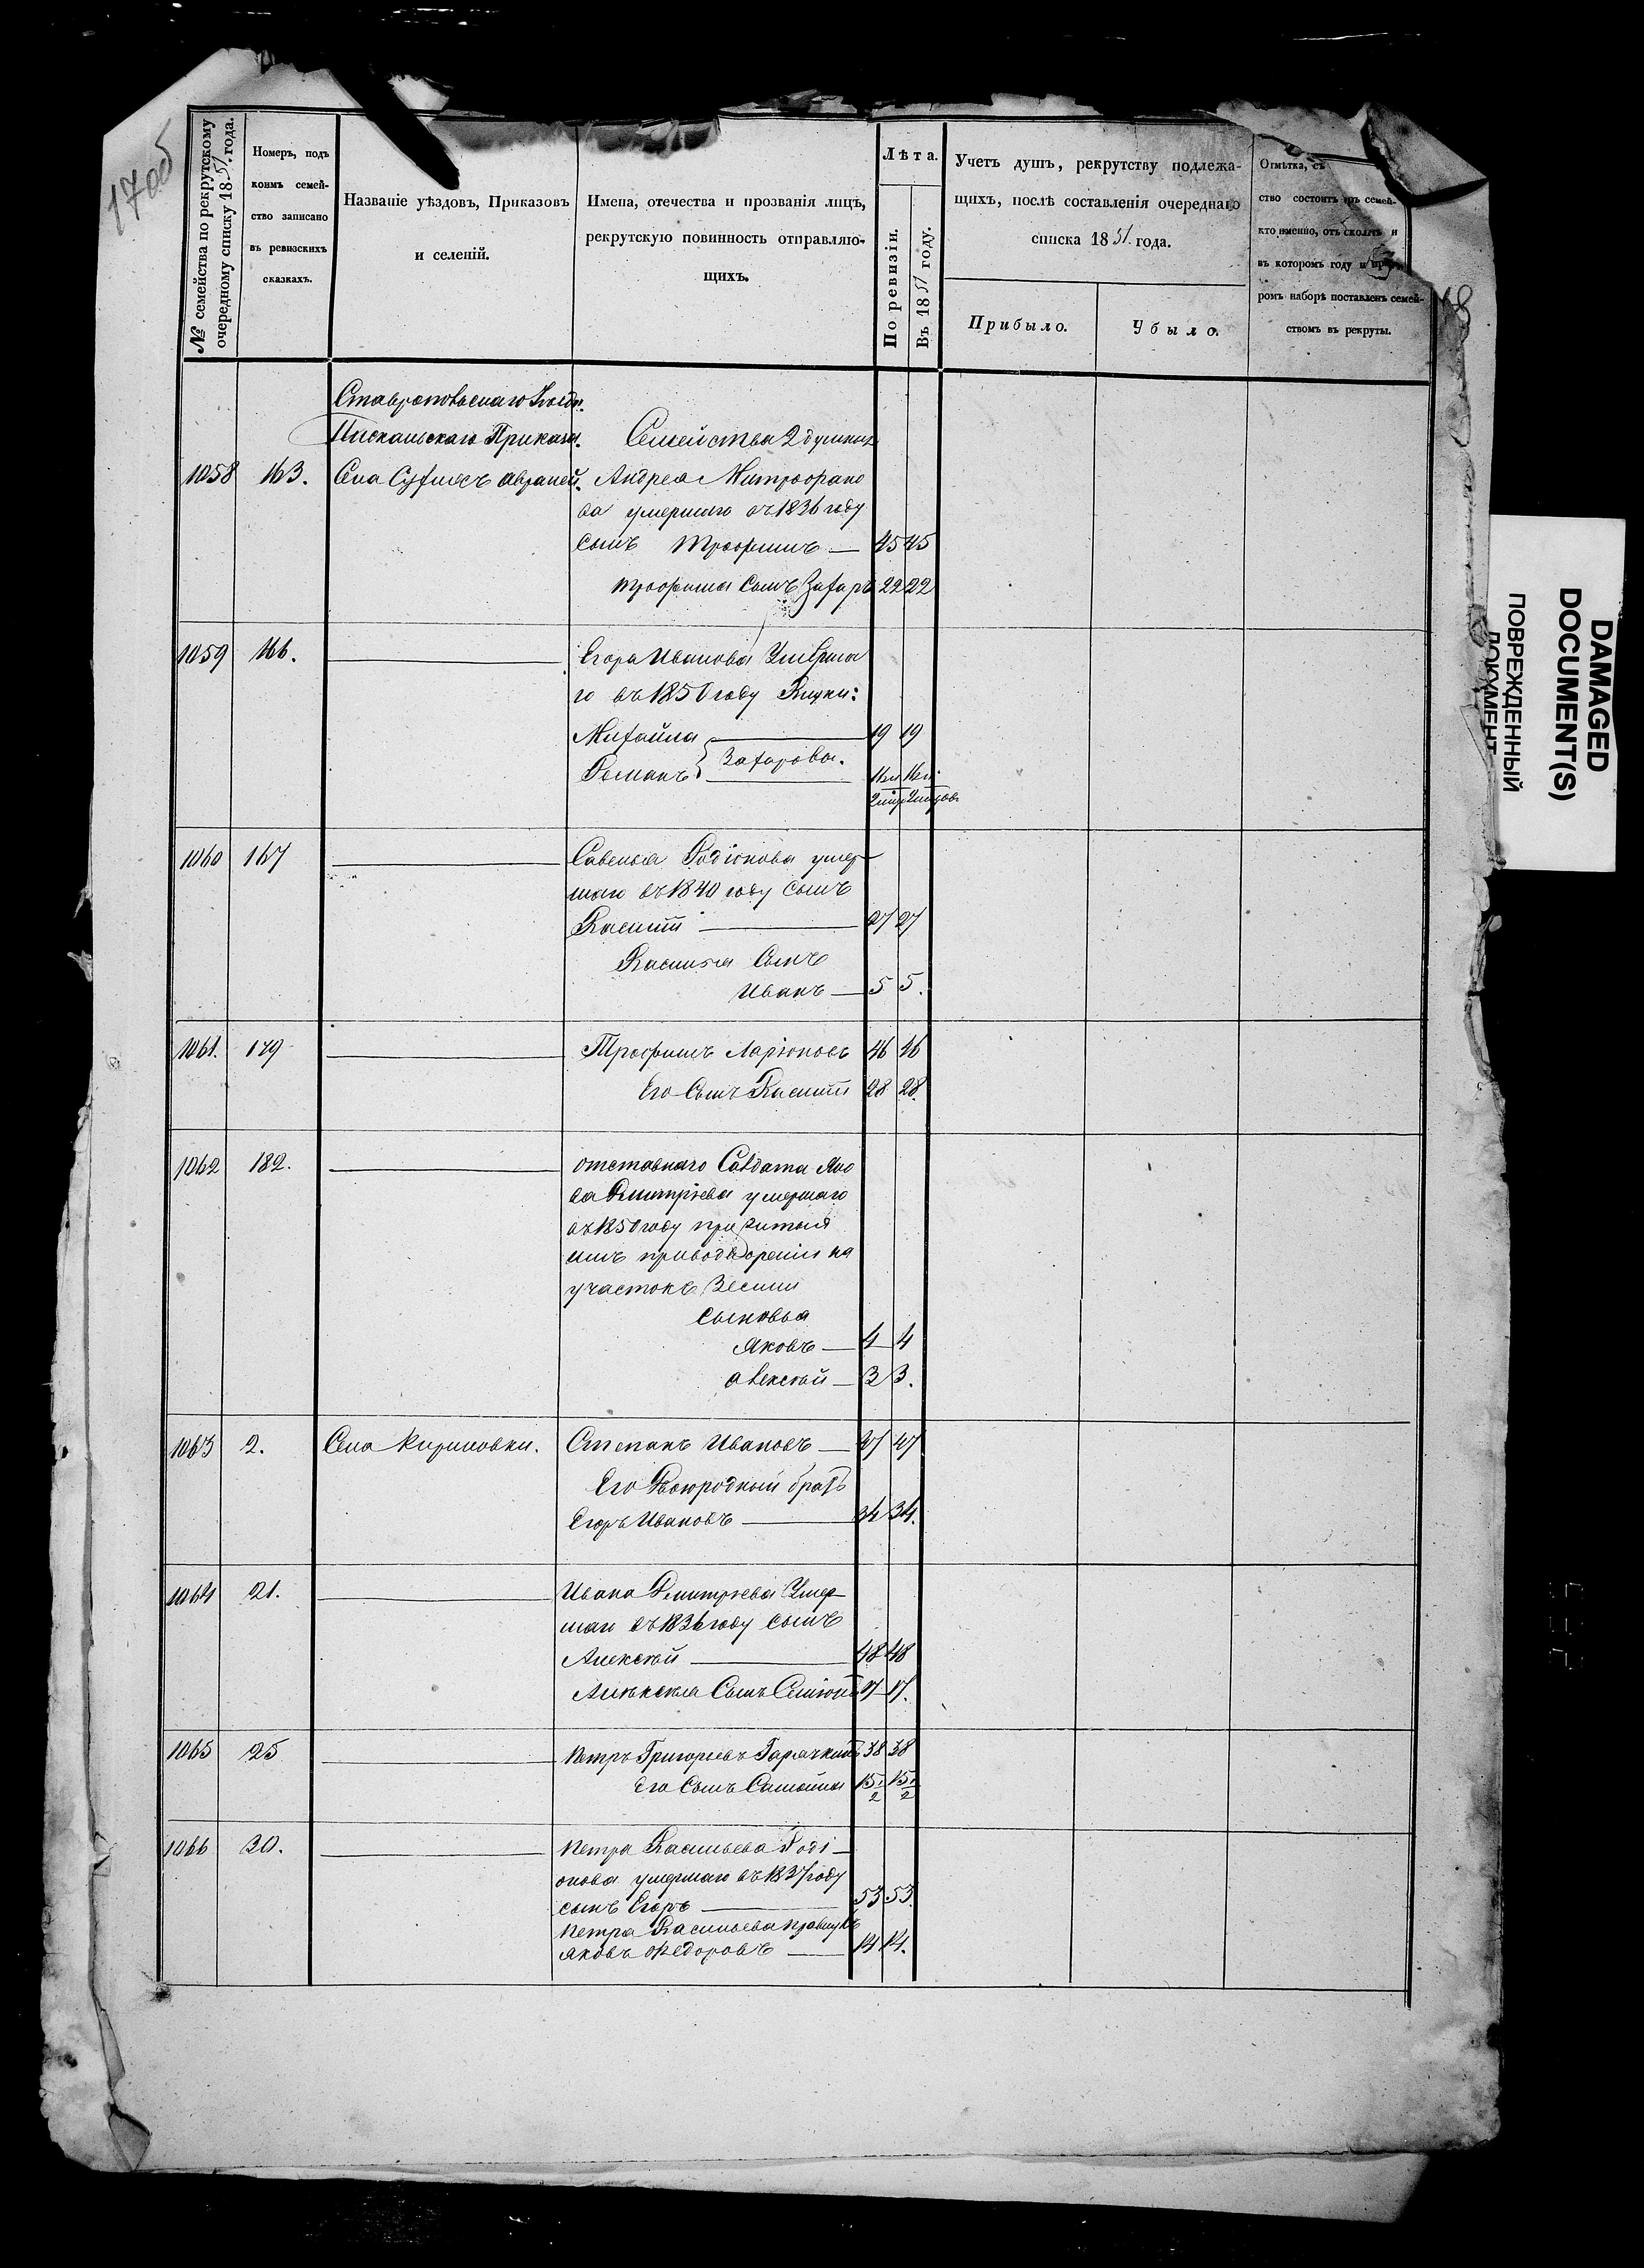 170об
№ семейства по рекрутскому очередному списку 1851 года.
Номеръ, подъ коимъ семейство записано въ ревизскихъ сказкахъ.
Названіе уѣздовъ, Приказовъ
и селеній.
Имена, отечества и прозванія лицъ,
рекрутскую повинность отправляю-
щихъ.
Лѣта.
По ревизіи.
Въ 1851 году.
Учетъ душъ, рекрутству подлежа-
щихъ, послѣ составленія очереднаго
списка 1851 года.
Прибыло.
Убыло.
Отмѣтка, съ
ство состоитъ семей-
кто именно, отъ сколькъ и
въ которомъ году и
ромъ наборѣ поставленъ семей-
ствомъ въ рекруты.
Ставропольскаго
Пискальскаго Приказа. Семейства 2 душныя
1058 163. Села Андрея Митрофано
ва умершаго въ 1836 году
сынъ Трофимъ — 45 45
Трофима сынъ Захаръ 22 22
1059 166. Егора Иванова Умерша
го въ 1850 году Внуки:
Михайла 19 19
Романъ } Захаровы.
1060 167 Савелья Родіонова умер-
шаго въ 1840 году сынъ
Василій 27 27
Василья Сынъ
Иванъ — 5 5.
1061. 179 Трофимъ Ларіоновъ 46 46
Его Сынъ Василій 28 28.
1062 182. отставнаго Салдата
Дмитріева умершаго
въ 1850 году прижитыя
имъ приводвореніи на
участокъ Земли
сыновья
Яковъ — 4 4
Алексѣй — 3 3.
1063 2. Села Кириловки. Степанъ Ивановъ — 47 47
Его Двоюродный братъ
Егоръ Ивановъ 34 34.
1064 21. Ивана Дмитріева Умер-
шаго въ 1836 году сынъ
Алексѣй 48 48
Алексѣя Сынъ 17 17.
1065 25 Петръ Григорьевъ Горячкинъ 38 38
Его Сынъ Самойла 15 1/2 15 1/2
1066 30. Петра Васильева Роді-
онова умершаго въ 1837 году
сынъ Егоръ 53 53.
Петра Васильева правнукъ
Яковъ Федоровъ — 14 14.
DAMAGED
DOCUMENT(S)
ПОВРЕЖДЕННЫЙ
ДОКУМЕНТ